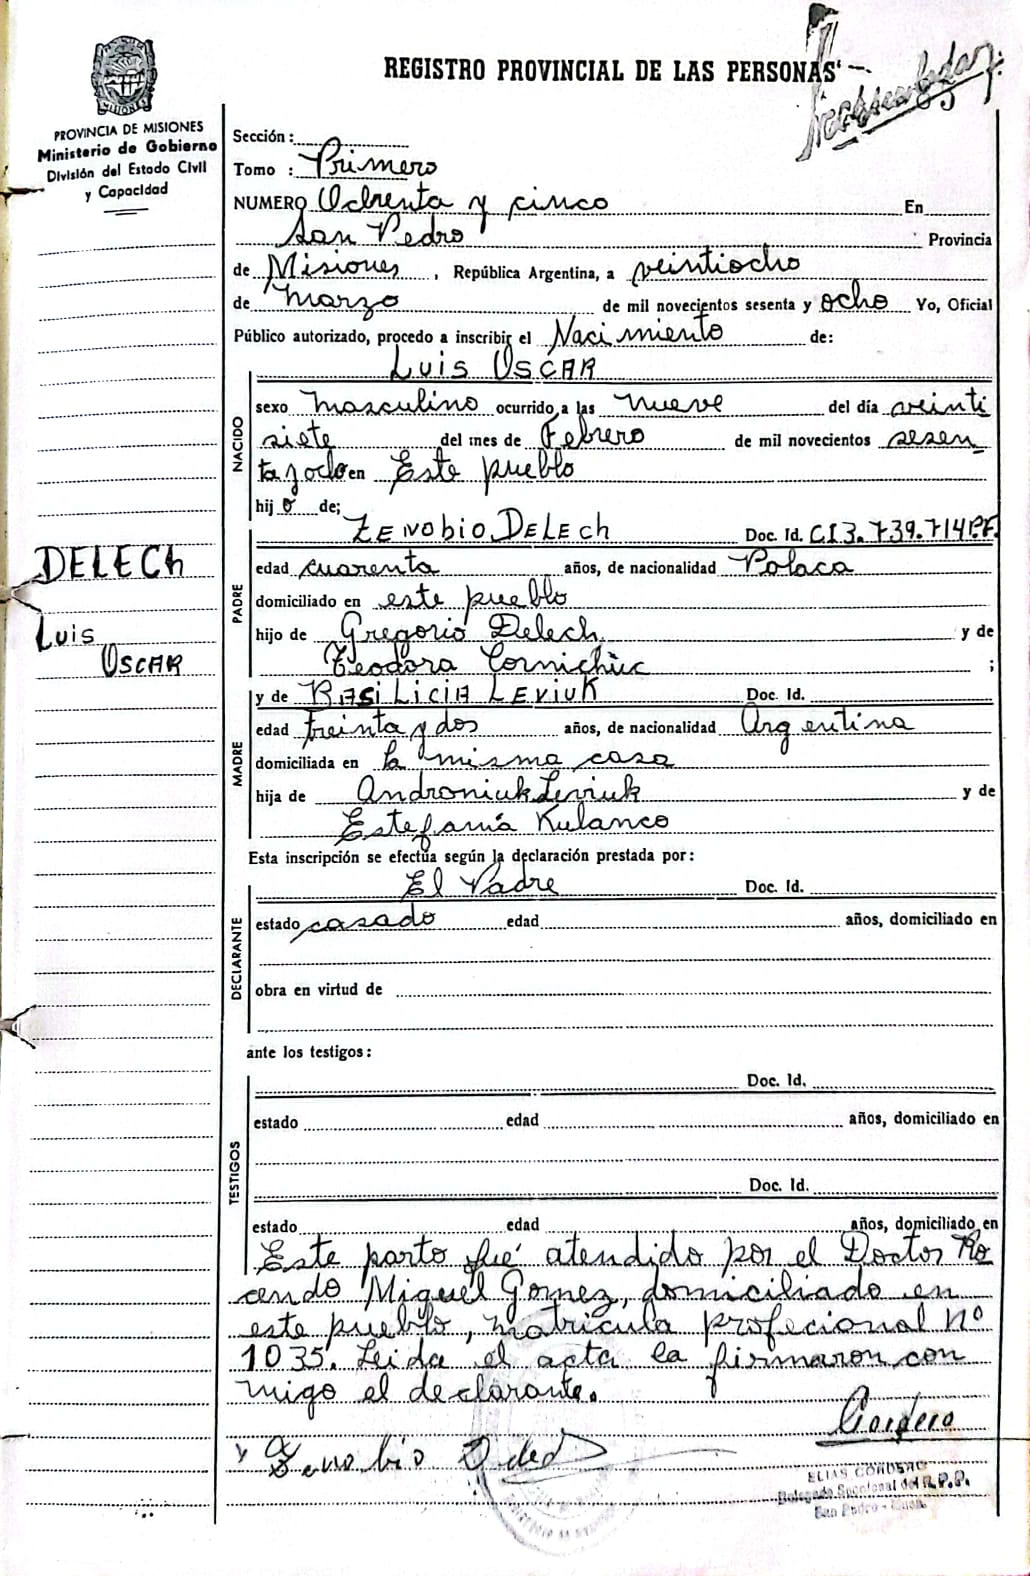 REGISTRO PROVINCIAL DE LAS PERSONAS
MISIONES
PROVINCIA DE MISIONES
Ministerio de Gobierno
División del Estado Civil
y Capacidad
Sección:
Tomo : Primero
NUMERO Ochenta y cinco En
San Pedro Provincia
de Misiones, República Argentina, a veintiocho
de marzo de mil novecientos sesenta y ocho Yo, Oficial
Público autorizado, procedo a inscribir el Nacimiento de:
Luis OSCAR
NACIDO
sexo masculino ocurrido a las nueve del día veinti
siete del mes de Febrero de mil novecientos sesen
ta y ocho en Este pueblo
hijo de;
ZENobio DELECh Doc. Id. CI 3.739.714 P.F.
DELECh
Luis
OSCAR
PADRE
edad cuarenta años, de nacionalidad Polaca
domiciliado en este pueblo
hijo de Gregorio Delech y de
Teodora ;
y de BASiLiCiA LEViuK Doc. Id.
MADRE
edad treinta y dos años, de nacionalidad Argentina
domiciliada en la misma casa
hija de Androniuk Leviuk y de
Estefanía Kulanco
Esta inscripción se efectúa según la declaración prestada por:
El Padre Doc. Id.
DECLARANTE
estado casado edad años, domiciliado en
obra en virtud de
ante los testigos:
Doc. Id.
TESTIGOS
estado edad años, domiciliado en
Doc. Id.
estado edad años, domiciliado en
Este parto fué atendido por el Doctor Ro
cendo Miguel Gomez, domiciliado en
este pueblo, matricula profecional Nº
1035. Leida el acta la firmaron con
migo el declarante.
Cordero
Zenobio Delech
ELIAS CORDERO
Delegado Seccional del R.P.P.
San Pedro - Mnes.